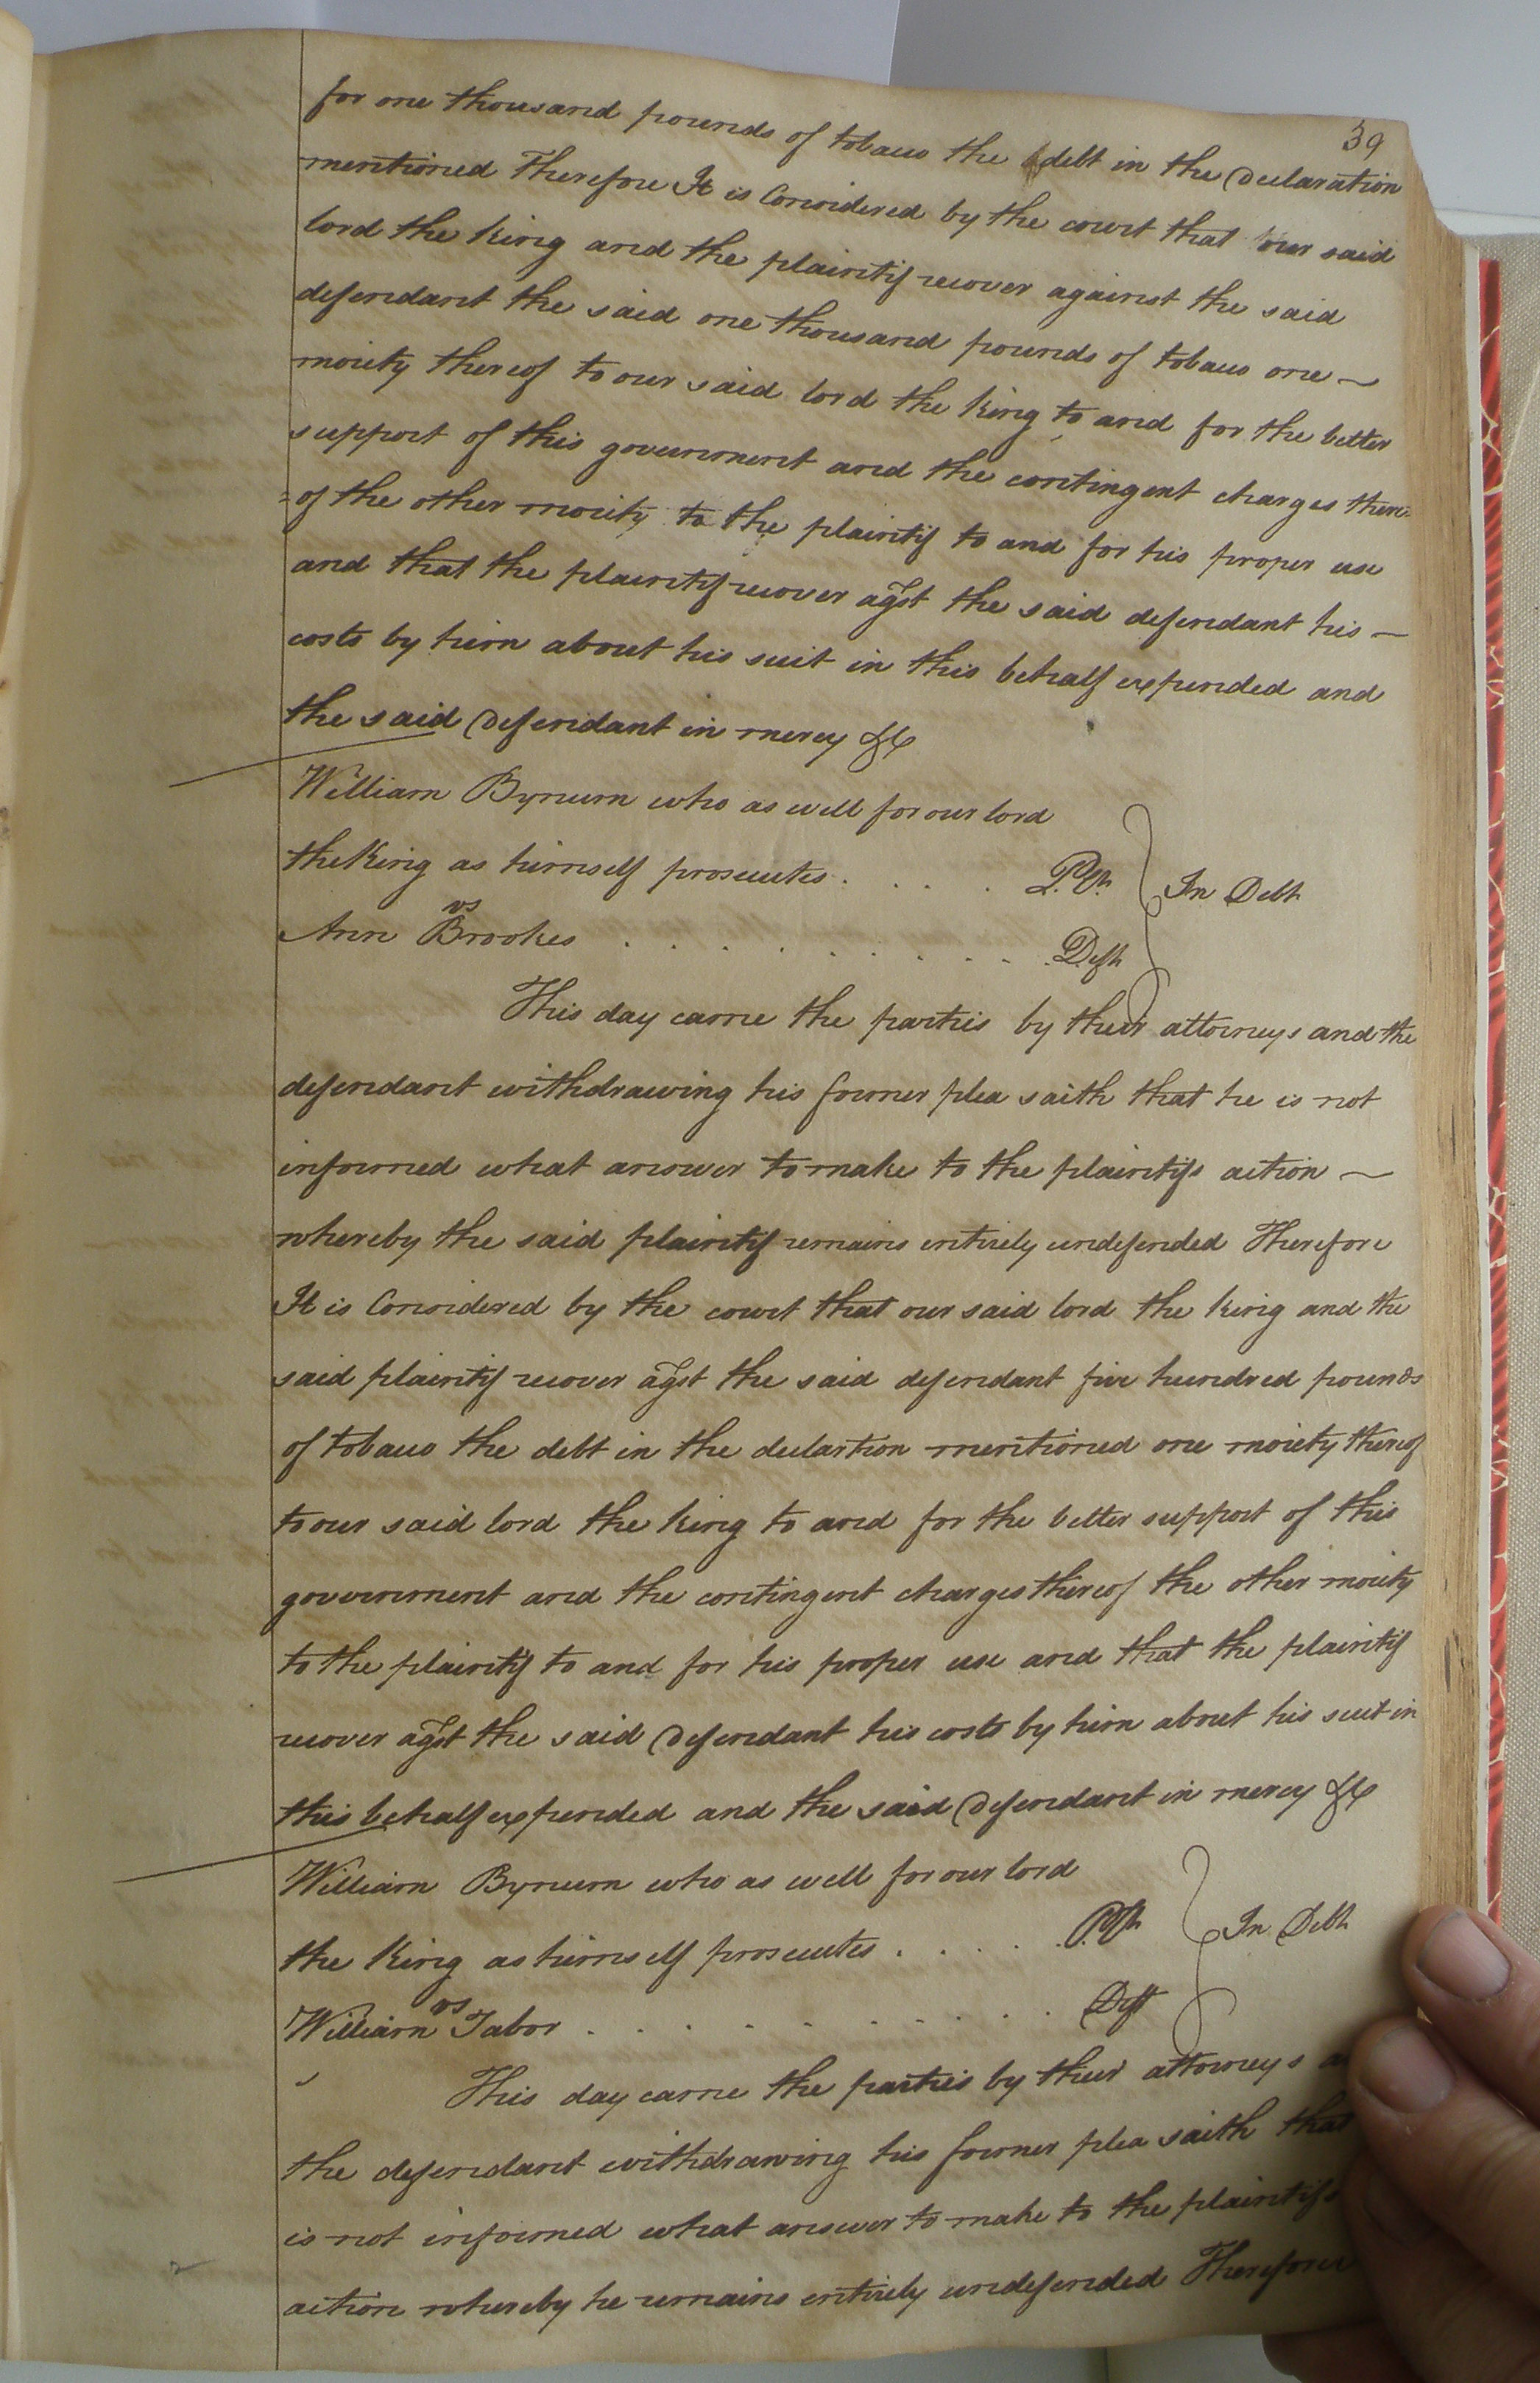 39
for one thousand pounds of tobacco the debt in the Declaration
mentioned Therefore It is Considered by the court that our said
lord the King and the plaintif recover against the said
defendant the said one thousand pounds of tobacco one —
moiety thereof to our said lord the King to and for the better
support of this government and the contingent charges there=
=of the other moiety to the plaintif to and for his proper use
and that the plaintif recover agst the said defendant his —
costs by him about his suit in this behalf expended and
the said Defendant in mercy &c
William Bynum who as well for our lord
the King as himself prosecutes . . . . Plt. In Debt
vs
Ann Brookes . . . . . . . . . . Deft
This day came the parties by their attorneys and the
defendant withdrawing his former plea saith that he is not
informed what answer to make to the plaintifs action —
whereby the said plaintif remains entirely undefended Therefore
It is Considered by the court that our said lord the King and the
said plaintif recover agst the said defendant five hundred pounds
of tobacco the debt in the declartion mentioned one moiety thereof
to our said lord the King to and for the better support of this
government and the contingent charges thereof the other moiety
to the plaintif to and for his proper use and that the plaintif
recover agst the said Defendant his costs by him about his suit in
this behalf expended and the said Defendant in mercy &c
William Bynum who as well for our lord
the King as himself prosecutes . . . . . Plt In Debt
vs
William Tabor . . . . . . . . . . Deft
This day came the parties by their attorneys a
the defendant withdrawing his former plea saith that
is not informed what answer to make to the plaintifs
action whereby he remains entirely undefended Therefore